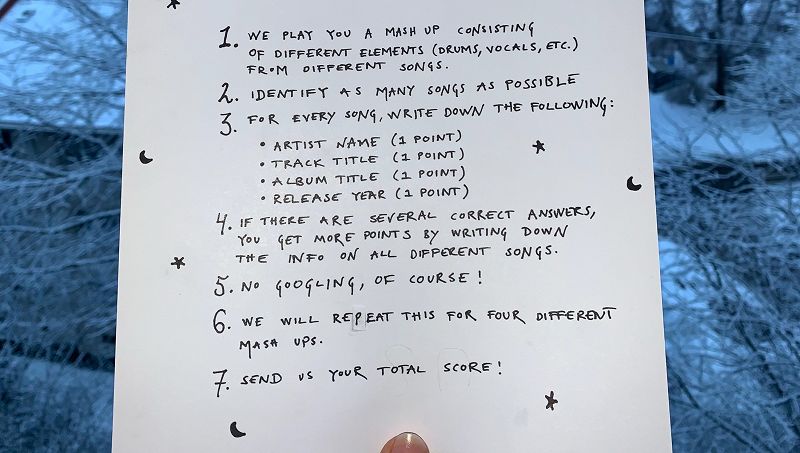 1. WE PLAY YOU A MASH UP CONSISTING
OF DIFFERENT ELEMENTS (DRUMS, VOCALS, ETC.)
FROM DIFFERENT SONGS.
2. IDENTIFY AS MANY SONGS AS POSSIBLE
3. FOR EVERY SONG, WRITE DOWN THE FOLLOWING:
• ARTIST NAME (1 POINT)
• TRACK TITLE (1 POINT)
• ALBUM TITLE (1 POINT)
• RELEASE YEAR (1 POINT)
4. IF THERE ARE SEVERAL CORRECT ANSWERS,
YOU GET MORE POINTS BY WRITING DOWN
THE INFO ON ALL DIFFERENT SONGS.
5. NO GOOGLING, OF COURSE!
6. WE WILL REPEAT THIS FOR FOUR DIFFERENT
MASH UPS.
7. SEND US YOUR TOTAL SCORE!